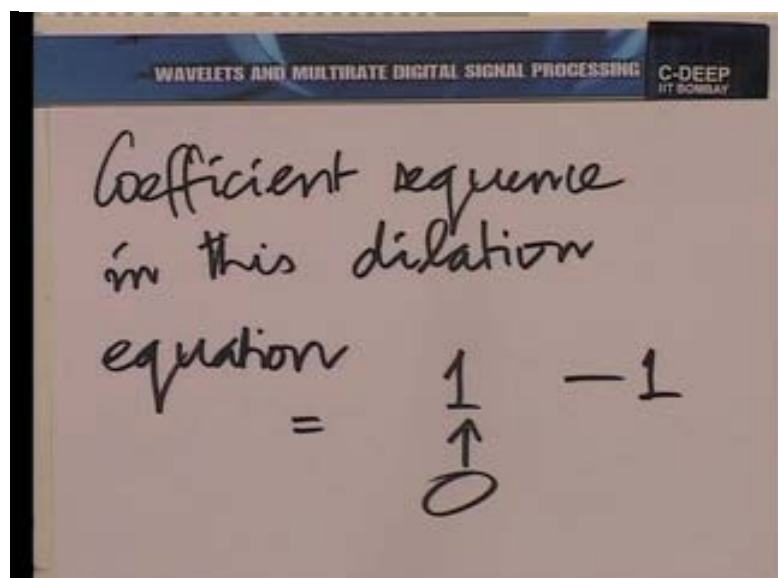 WAVELETS AND MULTIRATE DIGITAL SIGNAL PROCESSING
C-DEEP
IIT BOMBAY
Coefficient sequence
in this dilation
equation
= 1 -1
↑
0